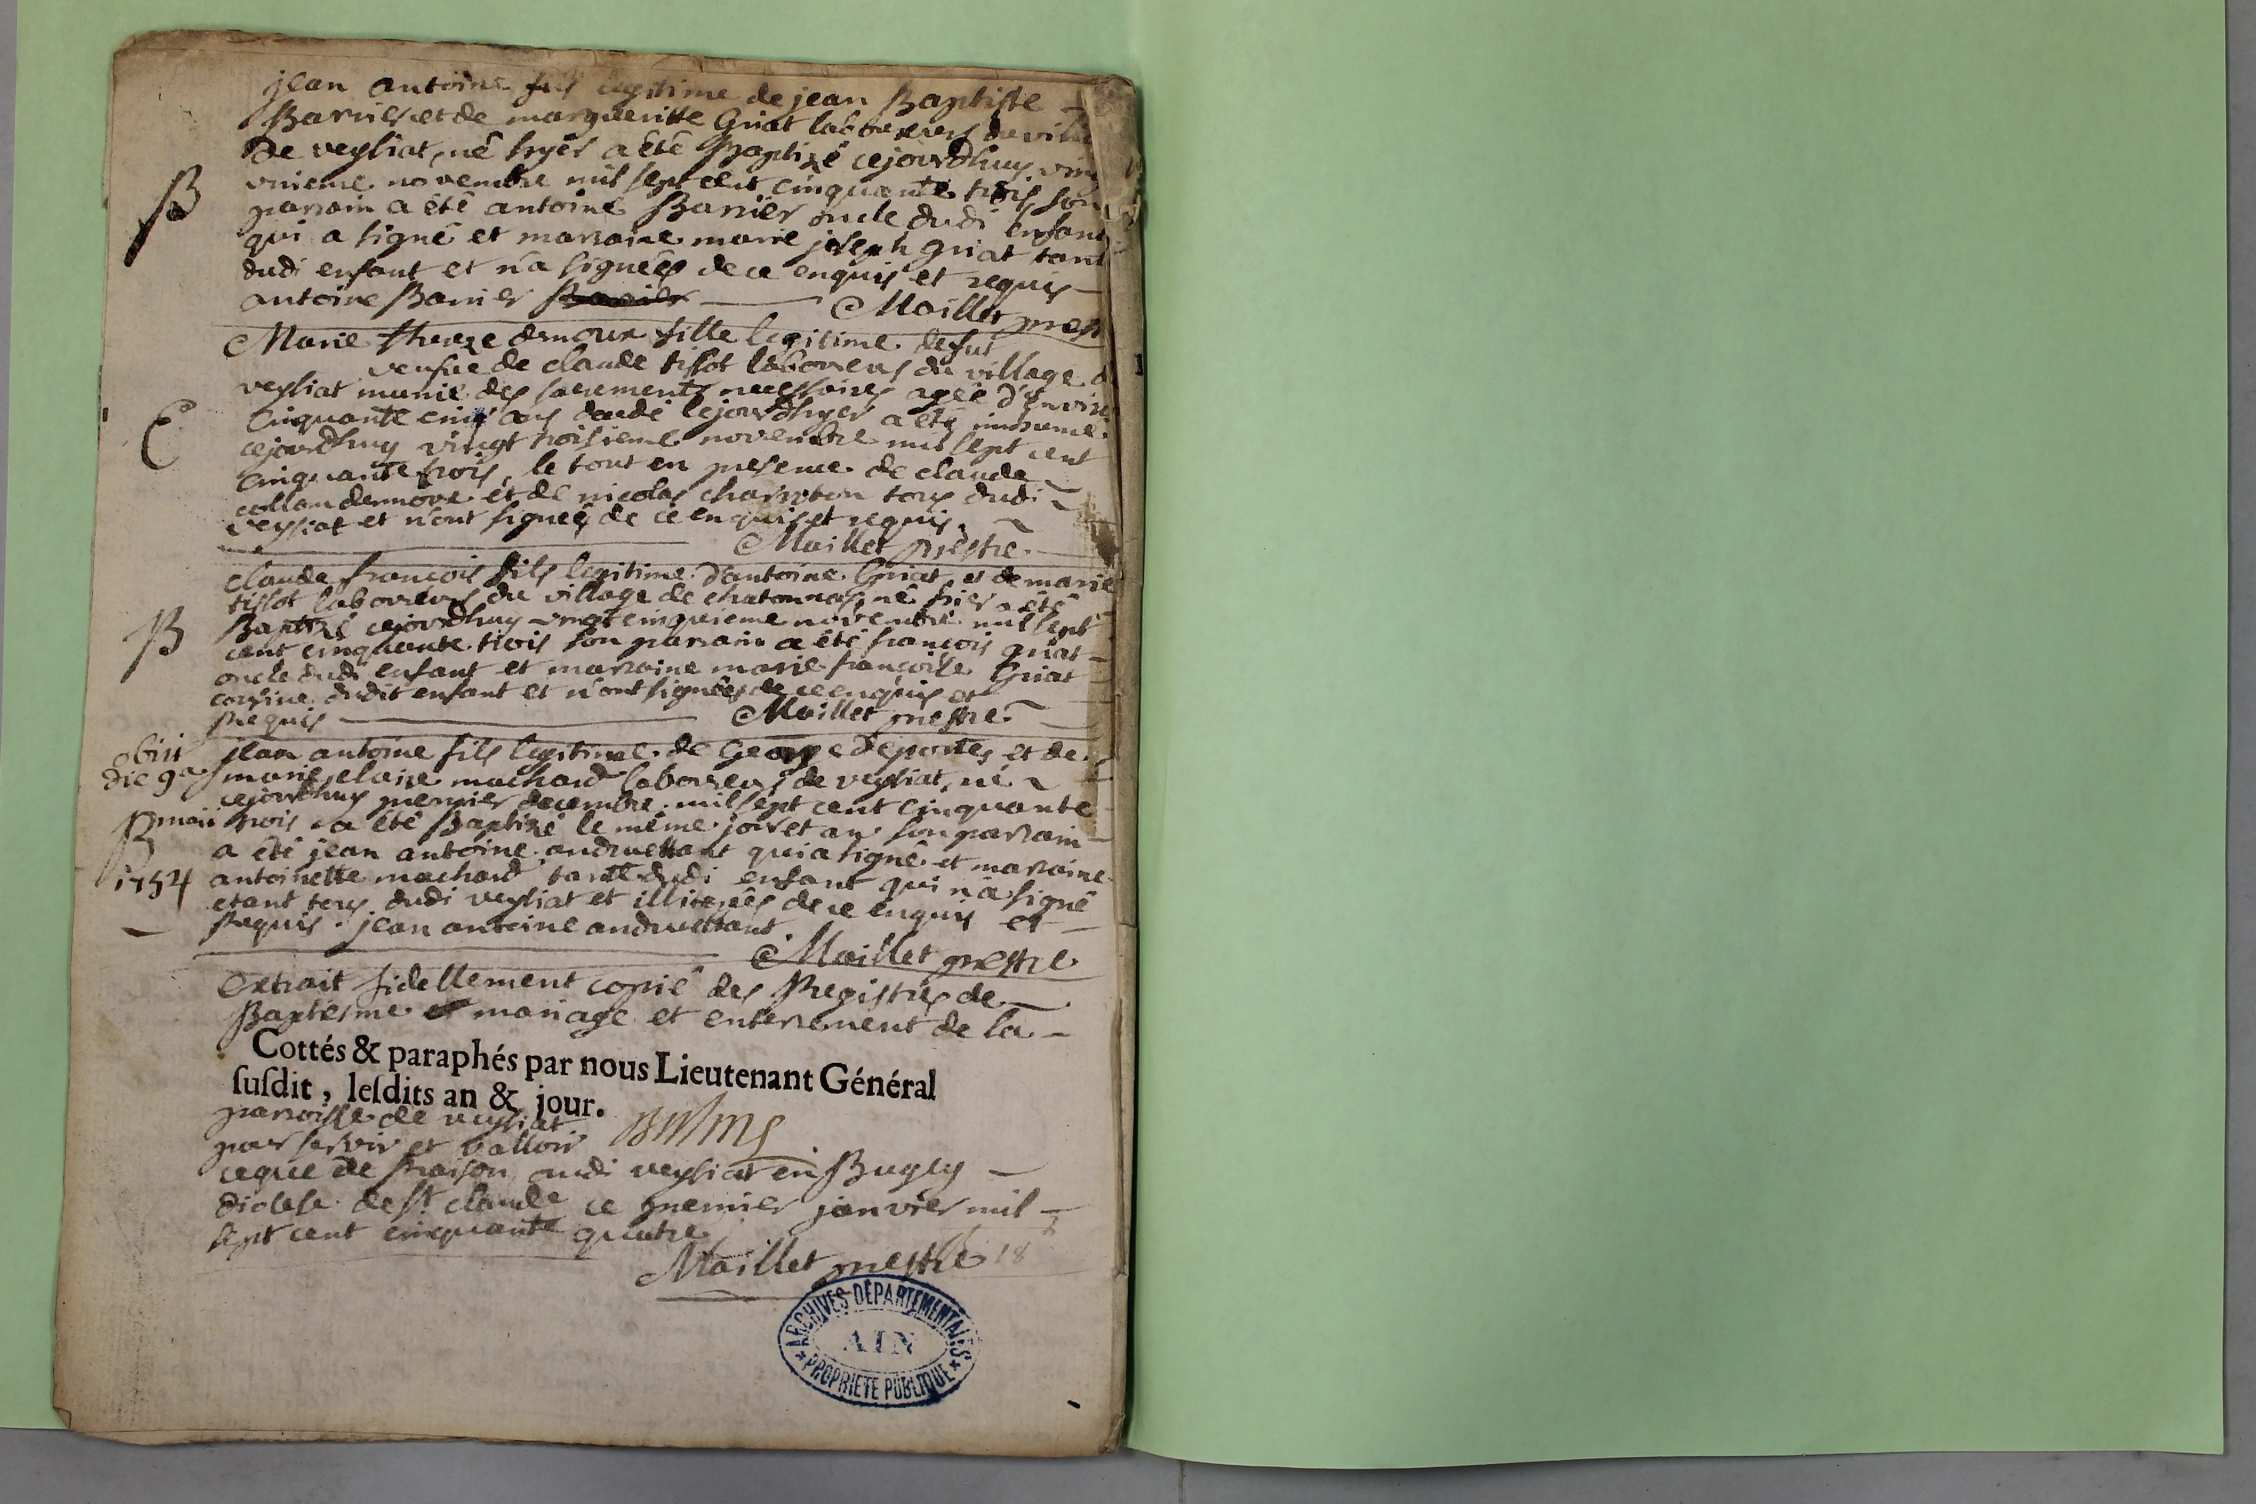 jean antoine fils legitime de jean Baptiste
Barrier et de margueritte Griat laboureurs du villa
De veysiat, né hyer a été Baptizé cejourdhuy ving
B
vnieme novembre mil sept cent cinquante trois son
parrain a été antoine Barrier oncle dudi enfant
qui a signé et marraine marie joseph griat tant
dudi enfant et n'a signéés de ce enquis et requis
antoine Barrier
Maillet pres
Marie fille legitime de fut
veufue de claude tissot laboureur du village d
veysiat munie des sacrements necessaires agée d'Enviro
E
Cinquante cinq ans decedé lejourdhyer a été inhumé
cejourdhuy vingt troisieme novembre mil sept cent
Cinquante trois, le tout en presence de claude
et de nicolas tous dudi
veysiat et n'ont signéés de ce enquis et requis.
Maillet prestre
claude francois fils legitime d'antoine Griat et de marie
tissot laboureurs du village de chatonnas, né hier a été
B
Baptizé cejourdhuy vingt cinquieme novembre mil sept
cent cinquante trois son parrain a été francois griat
oncle dudi enfant et marraine marie francoise Griat
cousine dudit enfant et n'ont signéés de ce enquis et
Requis
Maillet prestre
obiit
die 9a
maii
B
1754
jean antoine fils legitime de George Deportes et de
marie claire machard laboureurs de veysiat, né
cejourdhuy premier decembre mil sept cent cinquante
trois a été Baptizé le méme jour et an son parrain
a été jean antoine andruettant qui a signé et marraine
antoinette machard tante dudi enfant qui n'a signé
etant tous dudi veysiat et illiterés de ce enquis et
Requis. jean antoine andruettant
Maillet prestre
Extrait fidellement copié des Registres de
Baptésme mariage et enterrement de la
Cottés & paraphés par nous Lieutenant Général
susdit, lesdits an & jour.
parroisse de veysiat
pour servir et valloir
ceque de Raison audi veysiat en Bugey
diocese de St claude ce premier janvier mil
sept cent cinquante quatre
Maillet prestre
ARCHIVES DÉPARTEMENTALES
AIN
PROPRIÉTÉ PUBLIQUE